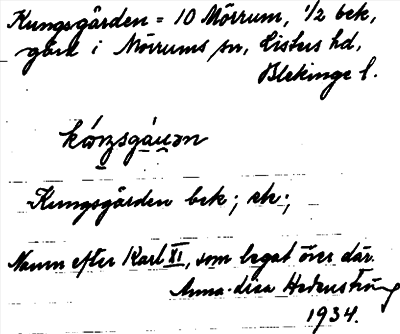 Kungsgården = 10 Mörrum, 1/2 bek,
gård i Mörrums sn, Listers hd,
Blekinge l.
Kungsgården bek; ek;
Namn efter Karl XI, som legat över där.
Anna-Lisa Hedenström
1934.